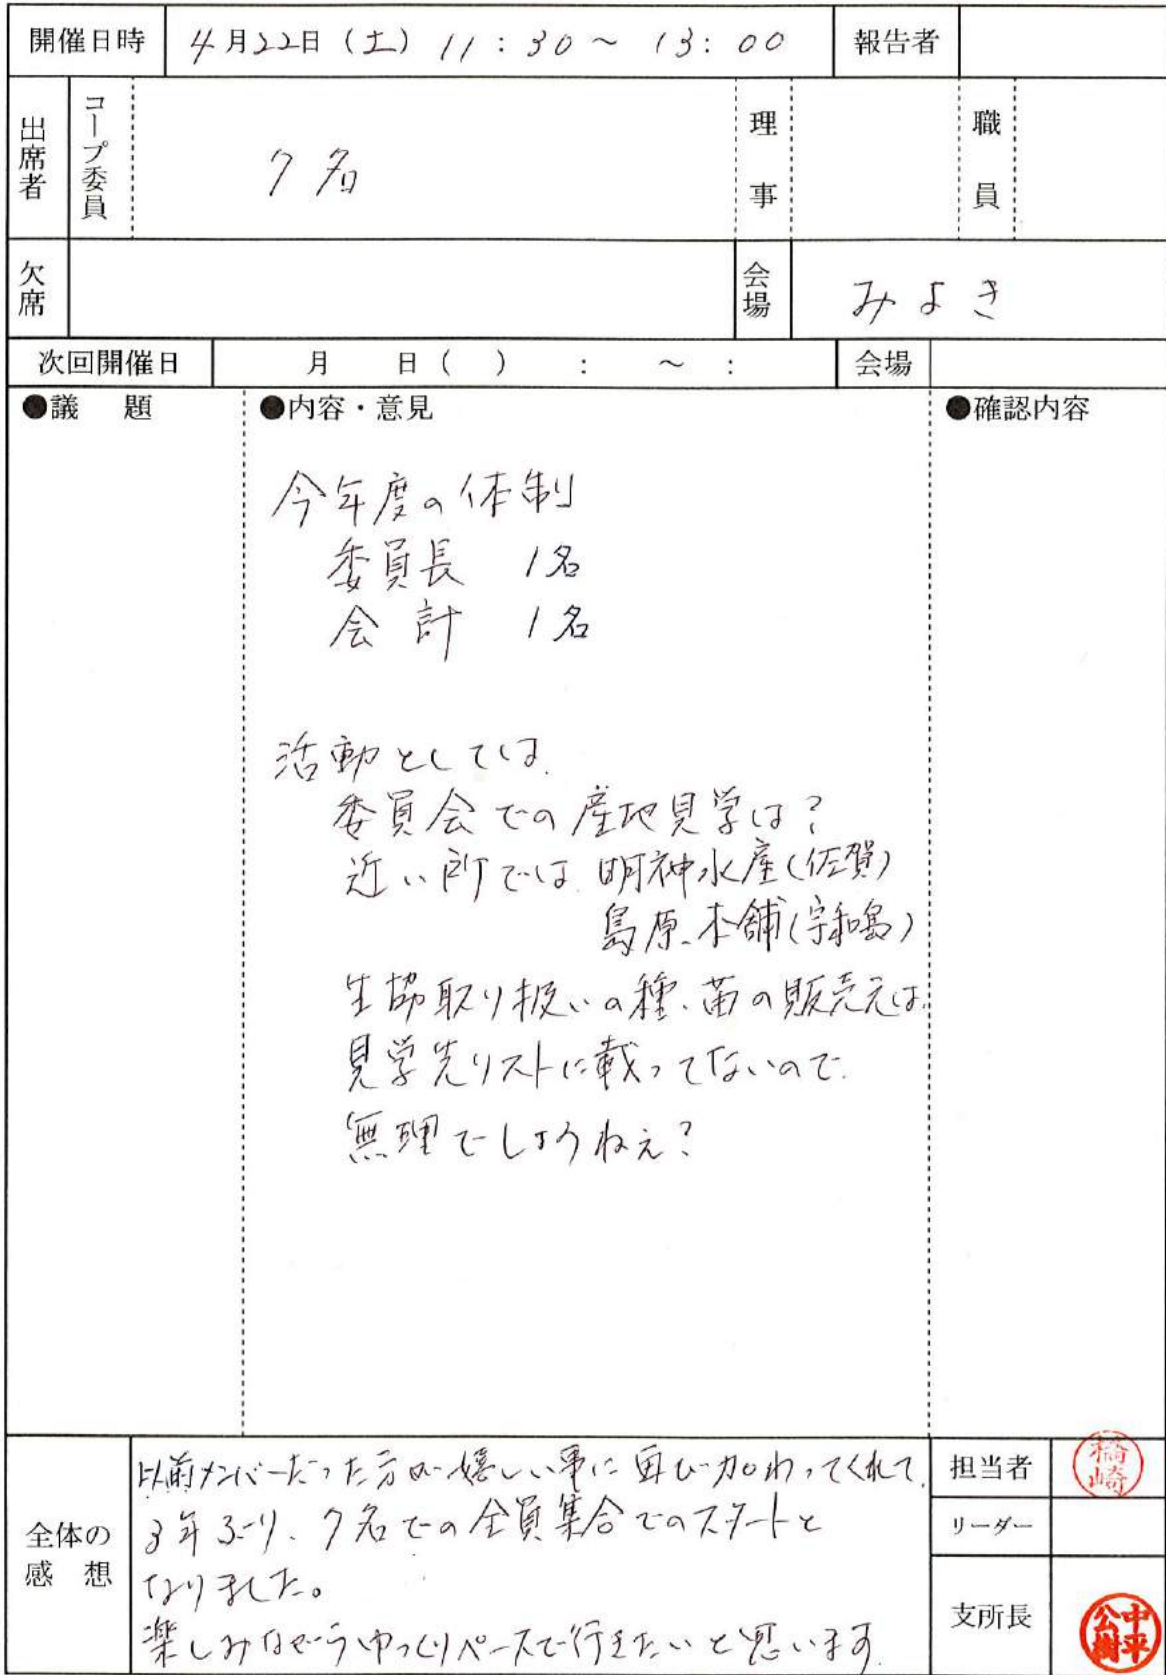 開催日時 4月22日（土）11：30～13：00 報告者
出席者 コープ委員 7名 理事 職員
欠席 会場 みよき
次回開催日 月 日（ ） ： ～ ： 会場
●議 題 ●内容・意見 ●確認内容
今年度の体制
委員長 1名
会計 1名
活動としては、
委員会での産地見学は？
近い所では、明神水産（佐賀）
島原本舗（宇和島）
生協取り扱いの種、苗の販売元は、
見学先リストに載ってないので、
無理でしょうねえ？
全体の感想
以前メンバーだった方が嬉しい事に再び加わってくれて、
3年ぶり、7名での全員集合でのスタートと
なりました。
楽しみながらゆっくりペースで行きたいと思います。
担当者 橋崎
リーダー
支所長 中平公樹